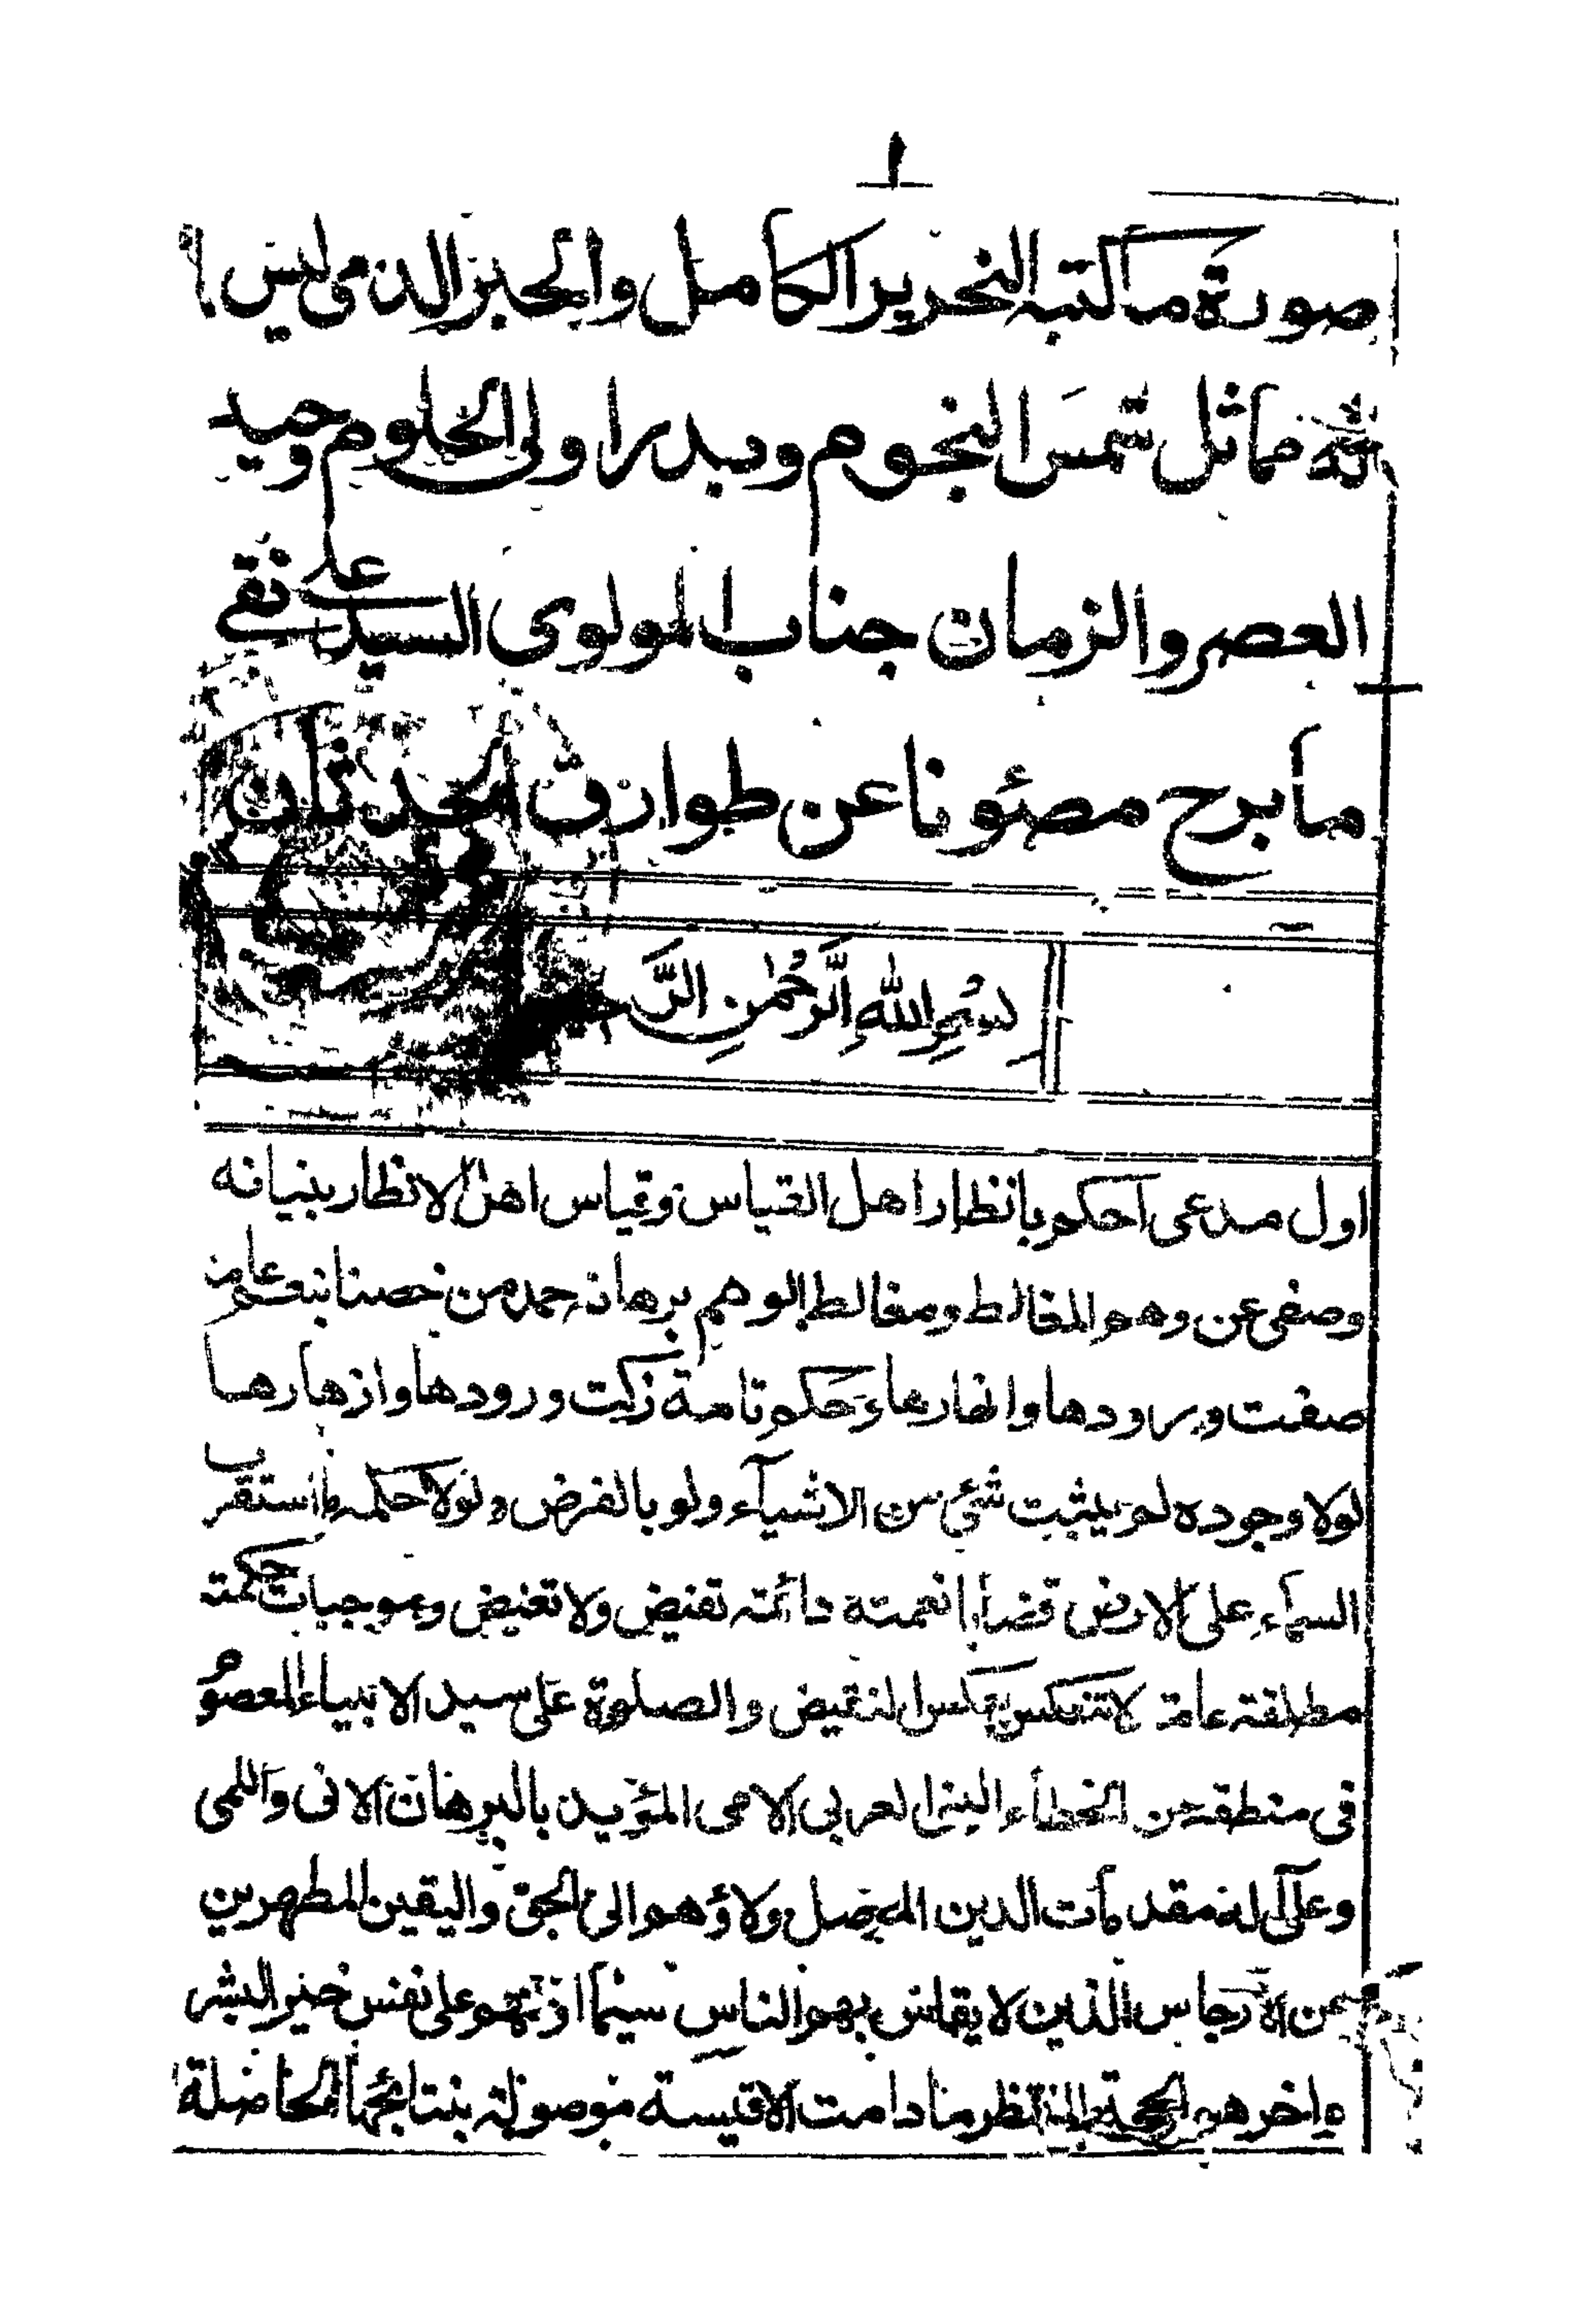 ١
صورة ما كتبه النحرير الكامل والحبر الذي ليس
مماثل شمس النجوم وبدر اولى الحلوم وحيد
العصر والزمان جناب المولوى السيد على نقى
ما برح مصئونا عن طوارق الحدثان
بسم الله الرحمن الرحيم
اول مدعى احكم بانظار اهل القياس وقياس اهل الانظار بنيانه
وصفى عن وهم المغالط ومغالط الوهم برهانه حمد من خصنا بنعم عامة
صفت ورودها وانهارها وحكم تامة زكت ورودها وازهارها
لولا وجوده لم يثبت شئ من الاشيآء ولو بالفرض ولولا حكمه ما استقرب
السمآء على الارض قضايا نعمته دائمته تفيض ولا تغيض وموجبات حكمته
مطلقته عامة لا تنعكس بعكس النقيض والصلوة على سيد الانبياء المعصوم
فى منطقه عن الخطأء النبى العربى الامى المؤيد بالبرهان الانى واللمى
وعلى آله مقدمات الدين الموصل ولاؤهم الى الحق واليقين المطهرين
عن الارجاس الذين لا يقاس بهم الناس سيما اولهم على نفس خير البشر
واخرهم الحجة المنتظر ما دامت الاقيسة موصولة بنتائجها الحاصلة